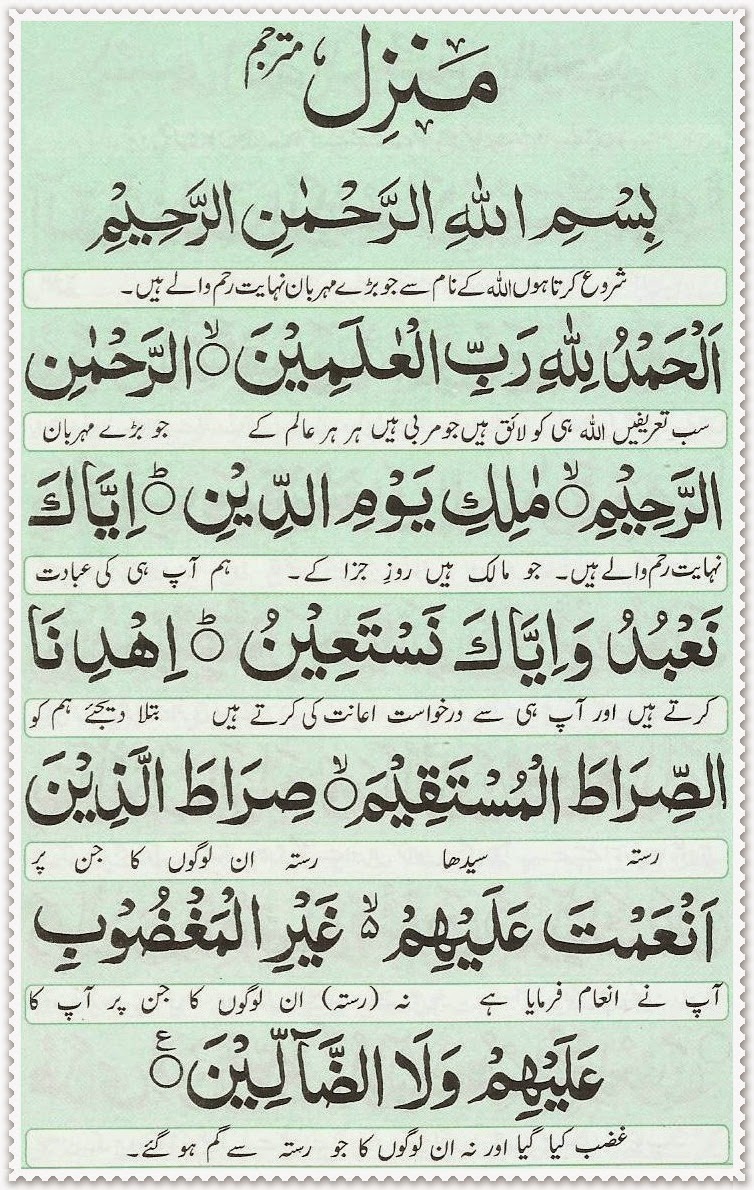 مَنزِل مترجم
بِسْمِ اللهِ الرَّحْمٰنِ الرَّحِيْمِ
شروع کرتا ہوں اللہ کے نام سے جو بڑے مہربان نہایت رحم والے ہیں۔
اَلْحَمْدُ لِلّٰهِ رَبِّ الْعٰلَمِيْنَ ۙ الرَّحْمٰنِ
سب تعریفیں اللہ ہی کو لائق ہیں جو مربی ہیں ہر ہر عالم کے جو بڑے مہربان
الرَّحِيْمِ ۙ مٰلِكِ يَوْمِ الدِّيْنِ ؕ اِيَّاكَ
نہایت رحم والے ہیں۔ جو مالک ہیں روزِ جزا کے۔ ہم آپ ہی کی عبادت
نَعْبُدُ وَاِيَّاكَ نَسْتَعِيْنُ ؕ اِهْدِنَا
کرتے ہیں اور آپ ہی سے درخواست اعانت کی کرتے ہیں بتلا دیجئے ہم کو
الصِّرَاطَ الْمُسْتَقِيْمَ ۙ صِرَاطَ الَّذِيْنَ
رستہ سیدھا رستہ ان لوگوں کا جن پر
اَنْعَمْتَ عَلَيْهِمْ ۙ۵ غَيْرِ الْمَغْضُوْبِ
آپ نے انعام فرمایا ہے نہ (رستہ) ان لوگوں کا جن پر آپ کا
عَلَيْهِمْ وَلَا الضَّآلِّيْنَ ع
غضب کیا گیا اور نہ ان لوگوں کا جو رستہ سے گم ہو گئے۔